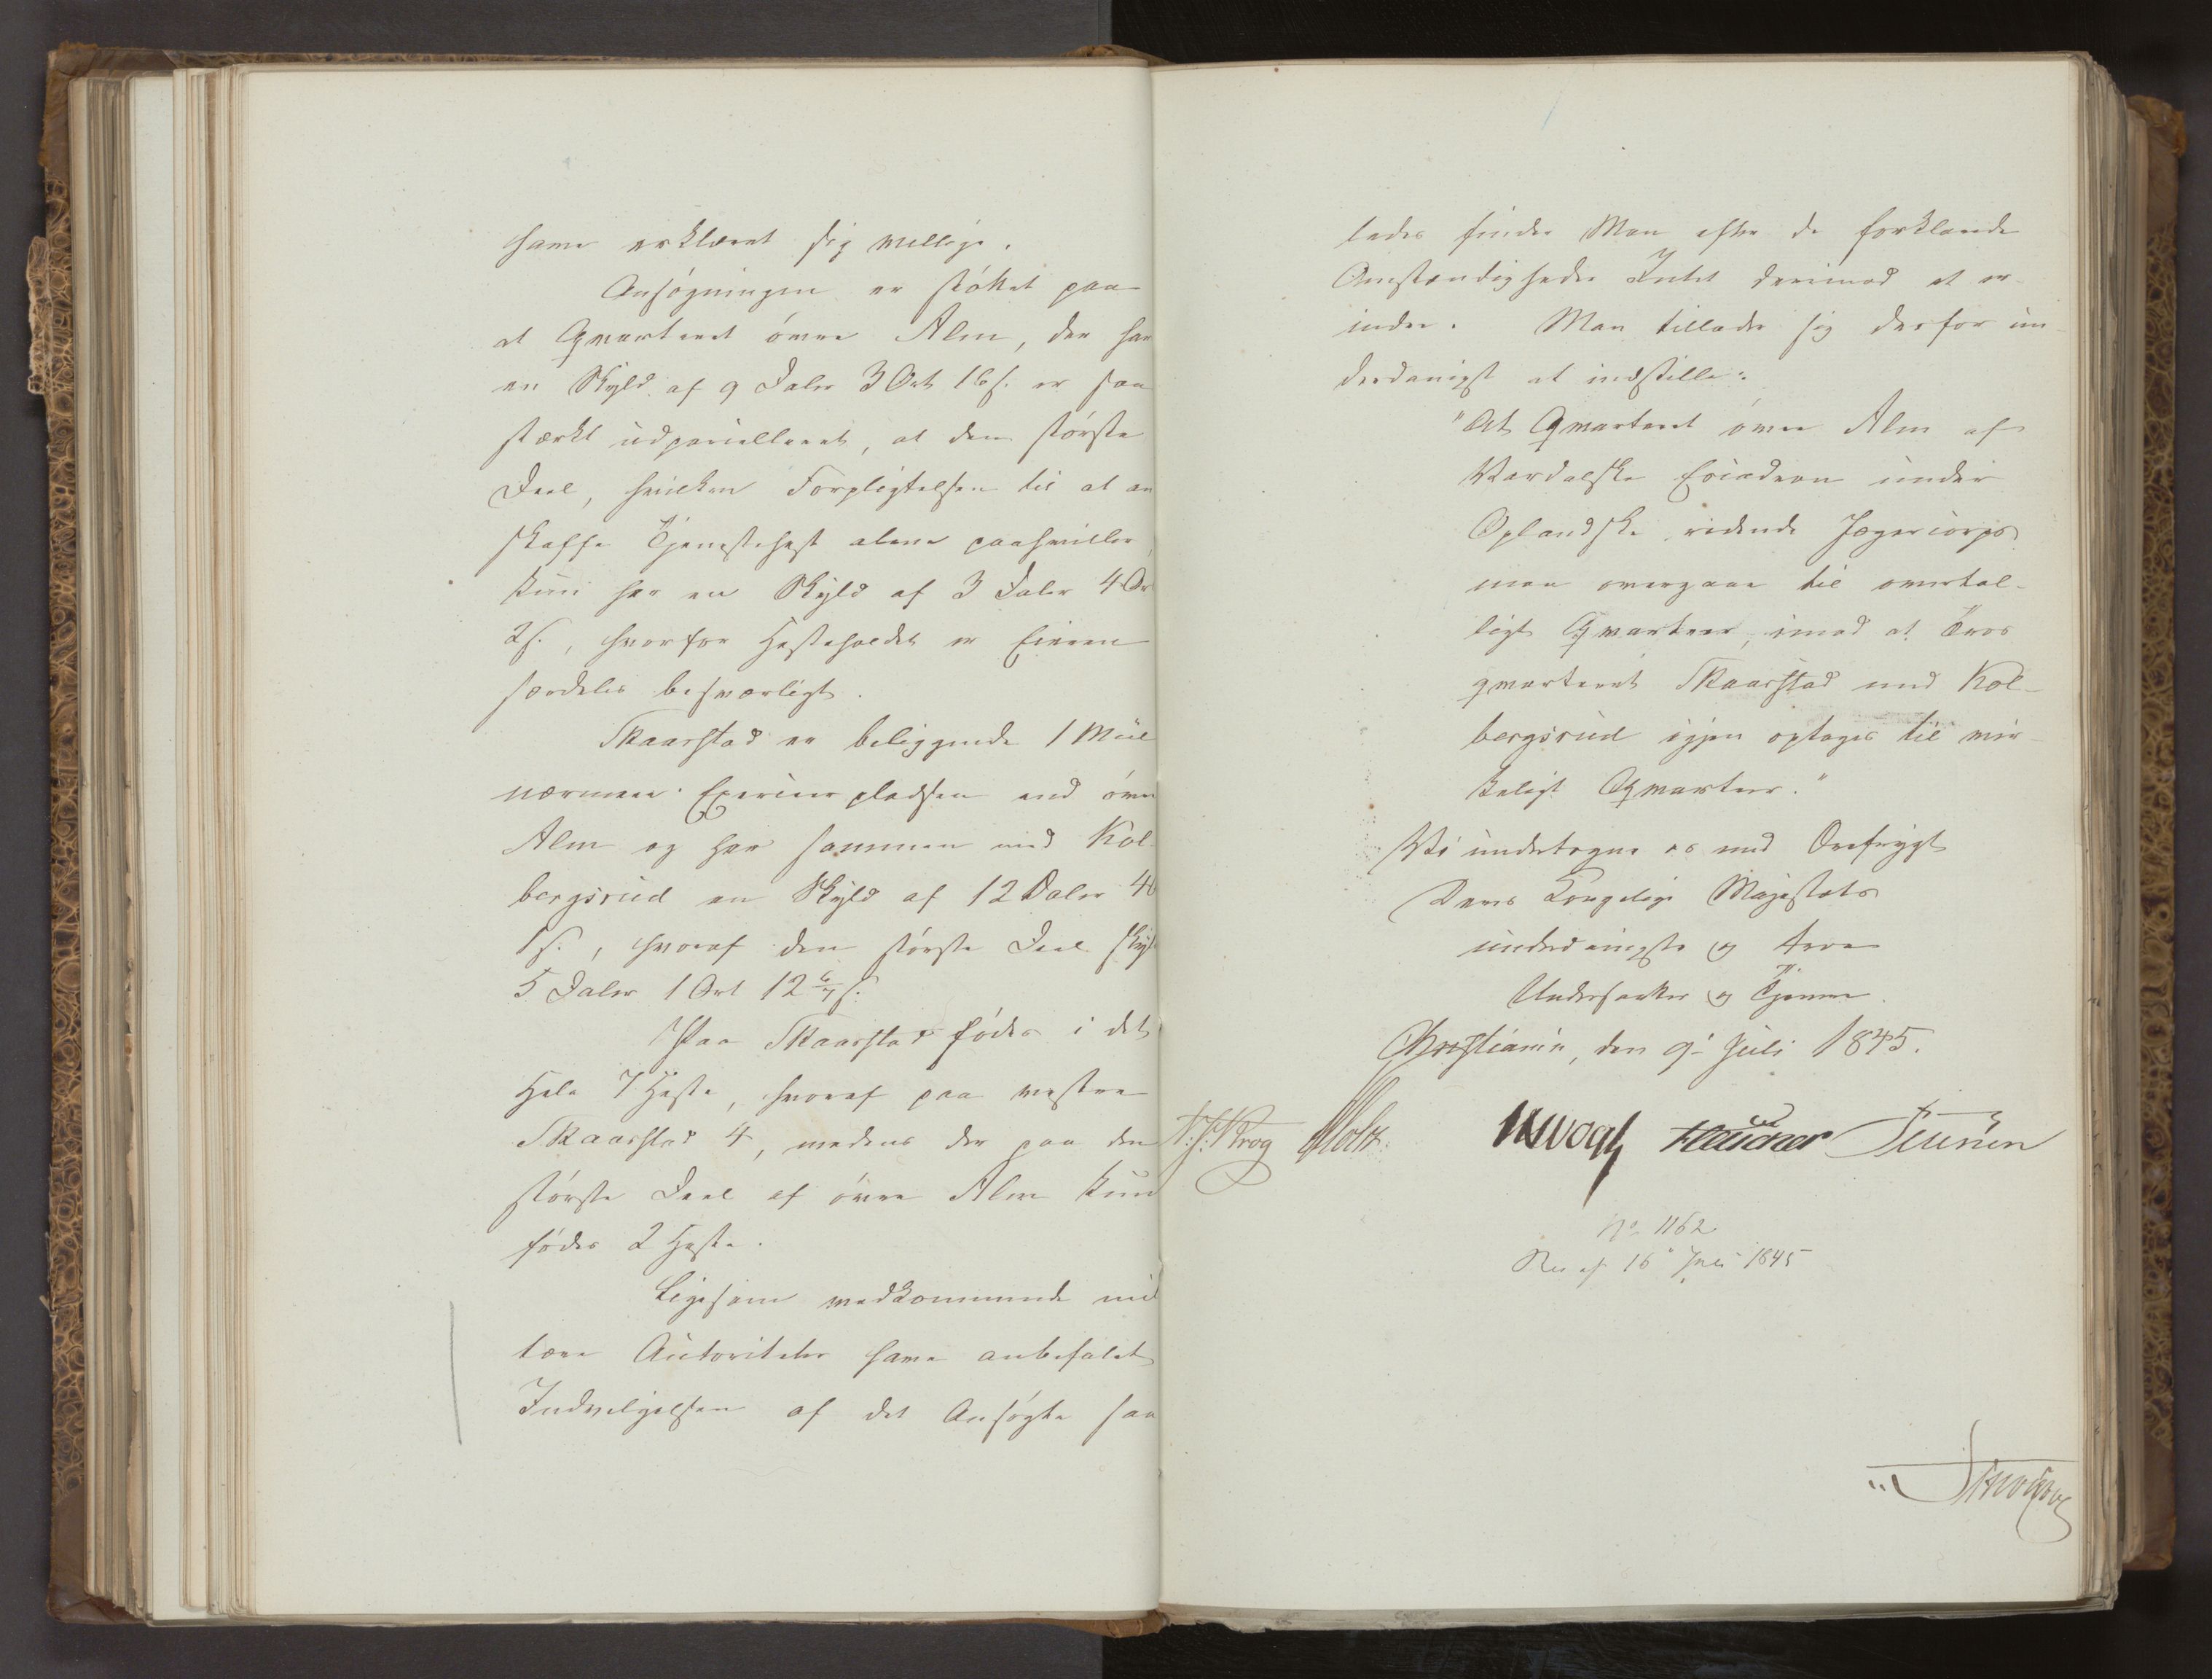 have erklæret sig willige.
Ansøgningen er støttet paa
at Qvarteret øvre Alm, der har
en Skyld af 9 Daler 3 Ort 16 s. er saa
stærkt udparielleret, at den største
Deel, hvilken Forpligtelsen til at an
skaffe Tjenestehest alene paahviller,
kun har en Skyld af 3 Daler 4 Or
2 s., hvorfor Hesteholdet er Eieren
særdeles besværligt.
Skaarstad er beliggende 1 Miil
nærmere Exerceerpladsen end øvre
Alm og har sammen med Kol
bergsrud en Skyld af 12 Daler 4 O
1 s., hvoraf den største Deel skyl
5 Daler 1 Ort 12 6/7 s.
Paa Skaarstad fødes i det
Hele 7 Heste, hvoraf paa vestre
Skaarstad 4, medens der paa den
største Deel af øvre Alm kun
fødes 2 Heste.
Ligesom vedkommende mil
tære Autoriteter have anbefalet
Indvilgelsen af det Ansøgte saa
ledes finder Man efter de forklarede
Omstændigheder Intet derimod at er-
indre. Man tillader sig derfor un-
derdanigst at indstille:
"At Qvarteret øvre Alm af
Vardalske Escadron under
Oplandske ridende Jægercorps
maa overgaae til overtal-
ligt Qvarteer, imod at Tros
qvarteret Skaarstad med Kol-
bergsrud igjen optages til vir-
keligt Qvarteer."
Vi undertegne os med Ærefrygt
Deres Kongelige Majestæts
underdanigste og troe
Undersaatter og Tjenere.
Christiania, den 9de Juli 1845.
N. J. Krog Motz. Vogt
No 1162
Res af 16de Juli 1845